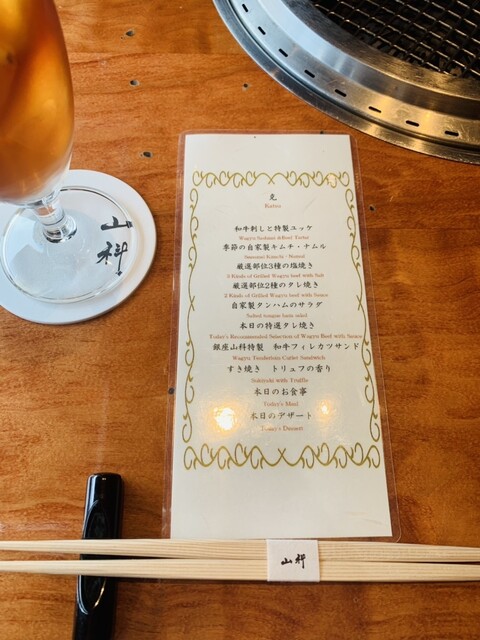 山科
克
Katsu
和牛刺しと特製ユッケ
Wagyu Sashimi &Beef Tartar
季節の自家製キムチ・ナムル
Seasonal Kimchi・Namul
厳選部位3種の塩焼き
3 Kinds of Grilled Wagyu beef with Salt
厳選部位2種のタレ焼き
2 Kinds of Grilled Wagyu beef with Sauce
自家製タンハムのサラダ
Salted tongue ham salad
本日の特選タレ焼き
Today's Recommended Selection of Wagyu Beef with Sauce
銀座山科特製 和牛フィレカツサンド
Wagyu Tenderloin Cutlet Sandwich
すき焼き トリュフの香り
Sukiyaki with Truffle
本日のお食事
Today's Meal
本日のデザート
Today's Dessert
山科